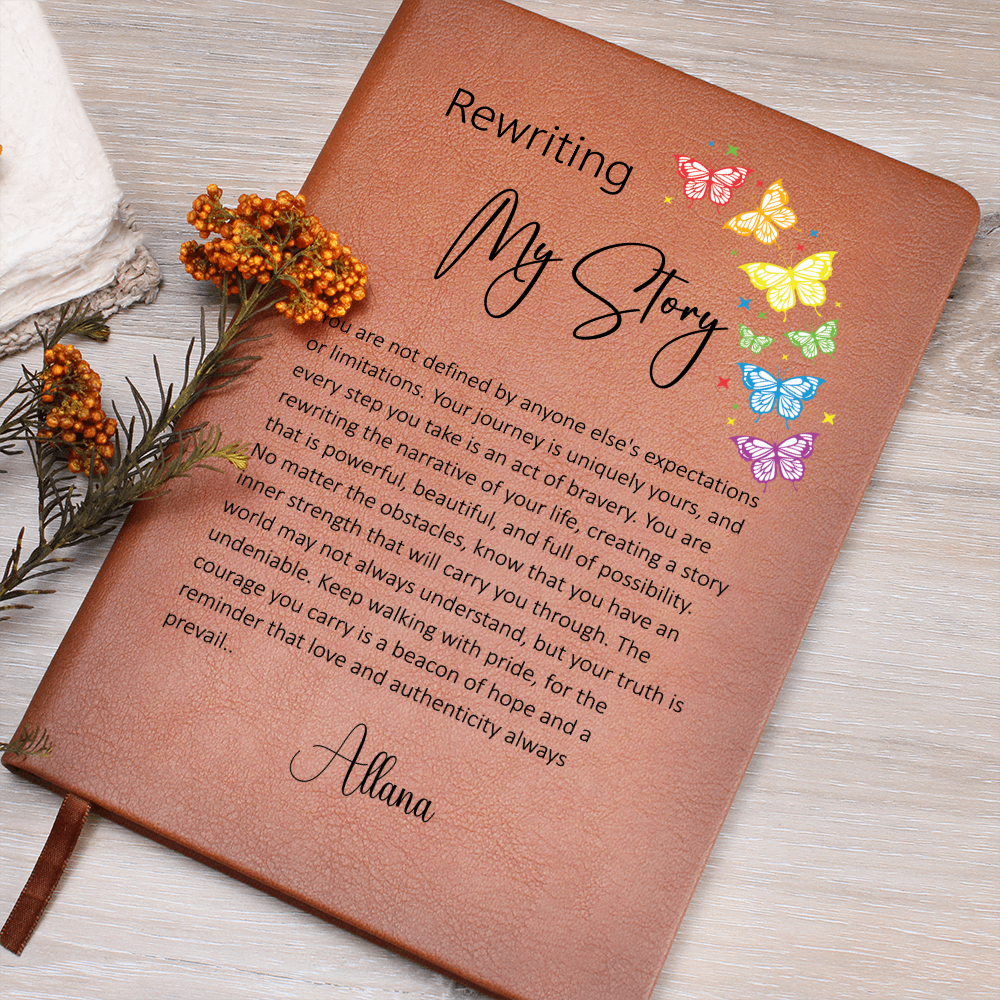 Rewriting
My Story
You are not defined by anyone else's expectations
or limitations. Your journey is uniquely yours, and
every step you take is an act of bravery. You are
rewriting the narrative of your life, creating a story
that is powerful, beautiful, and full of possibility.
No matter the obstacles, know that you have an
inner strength that will carry you through. The
world may not always understand, but your truth is
undeniable. Keep walking with pride, for the
courage you carry is a beacon of hope and a
reminder that love and authenticity always
prevail..
Allana